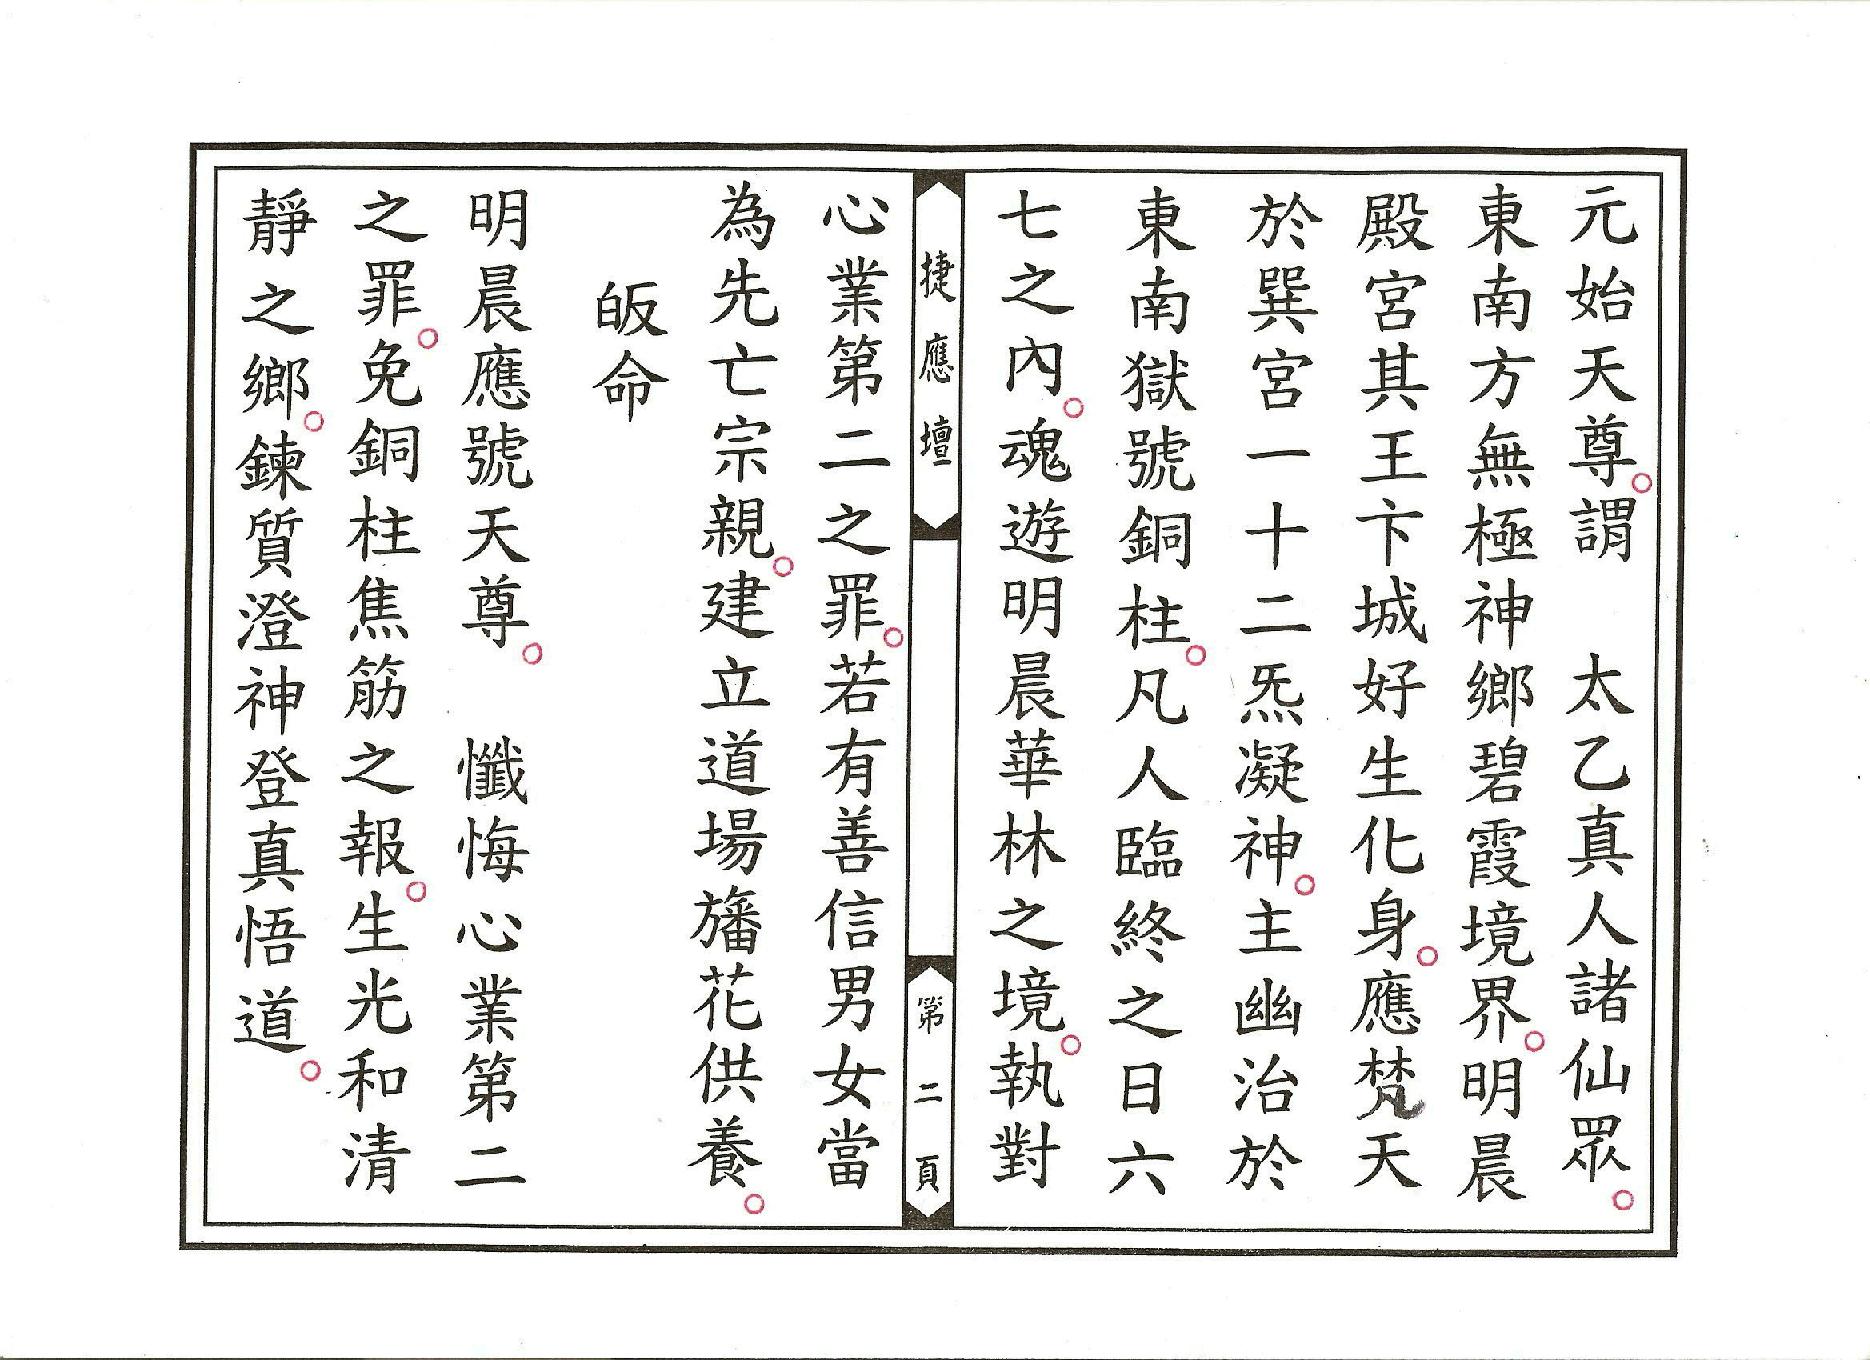 元始天尊。謂　太乙真人諸仙眾。
東南方無極神鄉碧霞境界。明晨
殿宮其王卞城好生化身。應梵天
於巽宮一十二炁凝神。主幽治於
東南獄號銅柱。凡人臨終之日六
七之內。魂遊明晨華林之境。執對
捷應壇
第二頁
心業第二之罪。若有善信男女當
為先亡宗親。建立道場旛花供養。
皈命
明晨應號天尊。　懺悔心業第二
之罪。免銅柱焦筋之報。生光和清
靜之鄉。鍊質澄神登真悟道。